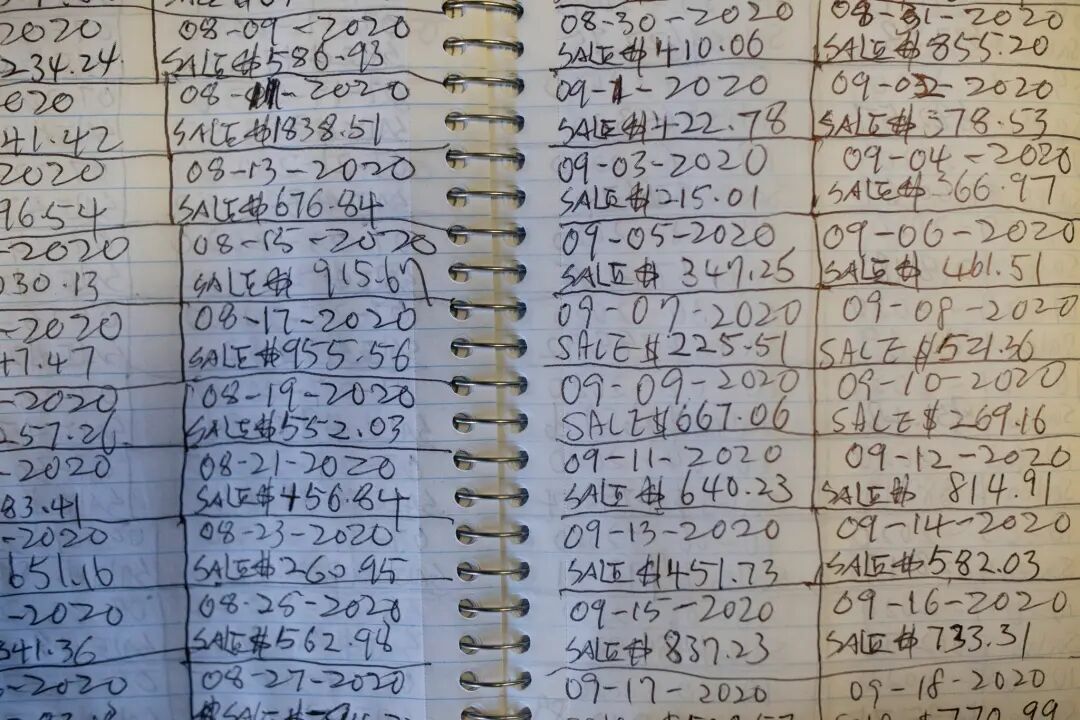 2020
234.24
020
41.42
2020
96.54
-2020
030.13
-2020
47.47
-2020
257.26
-2020
83.41
-2020
651.16
-2020
341.36
-2020
08-09-2020
SALE$586.93
08-11-2020
SALE$1838.51
08-13-2020
SALE$676.84
08-15-2020
SALE$ 915.67
08-17-2020
SALE$955.56
08-19-2020
SALE$552.03
08-21-2020
SALE$456.84
08-23-2020
SALE$260.95
08-25-2020
SALE$562.98
08-27-2020
08-30-2020
SALE$410.06
09-1-2020
SALE$422.78
09-03-2020
SALE$215.01
09-05-2020
SALE$ 347.25
09-07-2020
SALE$225.51
09-09-2020
SALE$667.06
09-11-2020
SALE$ 640.23
09-13-2020
SALE $451.73
09-15-2020
SALE$ 837.23
09-17-2020
08-31-2020
SALE$855.20
09-02-2020
SALE$378.53
09-04-2020
SALE$366.97
09-06-2020
SALE$ 461.51
09-08-2020
SALE $521.36
09-10-2020
SALE$269.16
09-12-2020
SALE$ 814.91
09-14-2020
SALE$582.03
09-16-2020
SALE$733.31
09-18-2020
$770.99